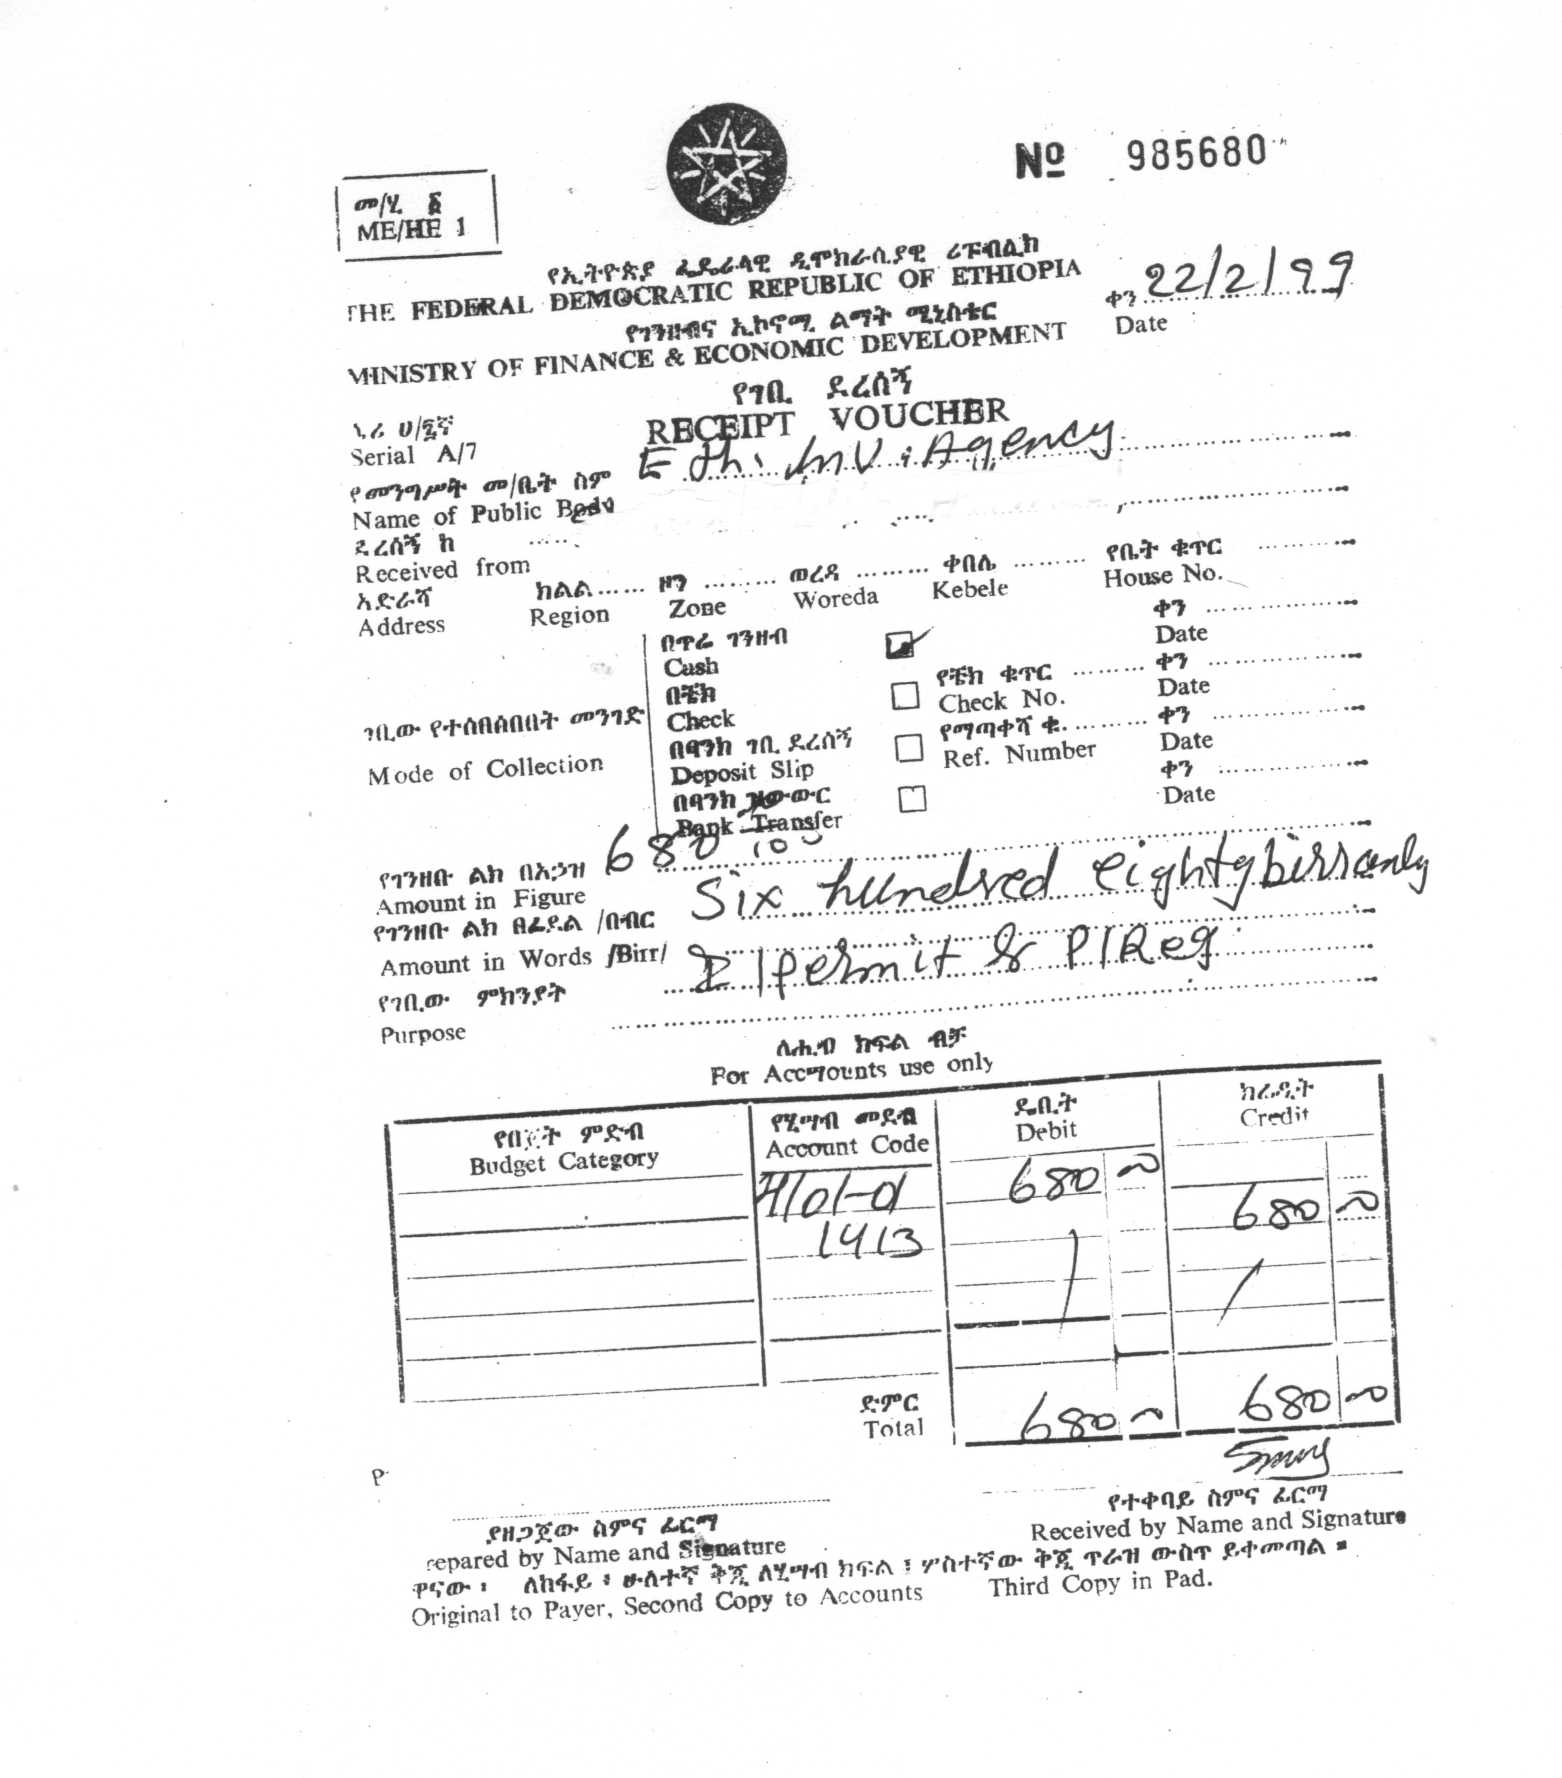 መ/ሂ ፩
ME/HE 1
№ 985680
የኢትዮጵያ ፌዴራላዊ ዲሞክራሲያዊ ሪፑብሊክ
THE FEDERAL DEMOCRATIC REPUBLIC OF ETHIOPIA
ቀን 22/2/99
Date
የገንዘብና ኢኮኖሚ ልማት ሚኒስቴር
MINISTRY OF FINANCE & ECONOMIC DEVELOPMENT
የገቢ ደረሰኝ
RECEIPT VOUCHER
Serial A/7
Eth. Inv. Agency
የመንግሥት መ/ቤት ስም
Name of Public Body
ደረሰኝ ከ
Received from
አድራሻ ክልል ዞን ወረዳ ቀበሌ የቤት ቁጥር
Address Region Zone Woreda Kebele House No.
በጥሬ ገንዘብ ቀን
Cash Date
በቼክ የቼክ ቁጥር ቀን
Check Check No. Date
ገቢው የተሰበሰበበት መንገድ
Mode of Collection
በባንክ ገቢ ደረሰኝ የማጣቀሻ ቁ. ቀን
Deposit Slip Ref. Number Date
በባንክ ዝውውር ቀን
Bank Transfer Date
የገንዘቡ ልክ በአኃዝ 680
Amount in Figure
የገንዘቡ ልክ በፊደል /በብር Six hundred eighty birr only
Amount in Words /Birr/
የገቢው ምክንያት I/permit & P/Reg
Purpose
ለሒሳብ ክፍል ብቻ
For Accounts use only
የበጀት ምድብ የሂሣብ መደብ ዴቢት ክሬዲት
Budget Category Account Code Debit Credit
4101-01 680
1413 680
ድምር
Total 680 680
የተቀባይ ስምና ፊርማ
Received by Name and Signature
ያዘጋጀው ስምና ፊርማ
repared by Name and Signature
ዋናው ፡ ለከፋይ ፡ ሁለተኛ ቅጂ ለሂሣብ ክፍል ፤ ሦስተኛው ቅጂ ጥራዝ ውስጥ ይቀመጣል ።
Original to Payer, Second Copy to Accounts Third Copy in Pad.